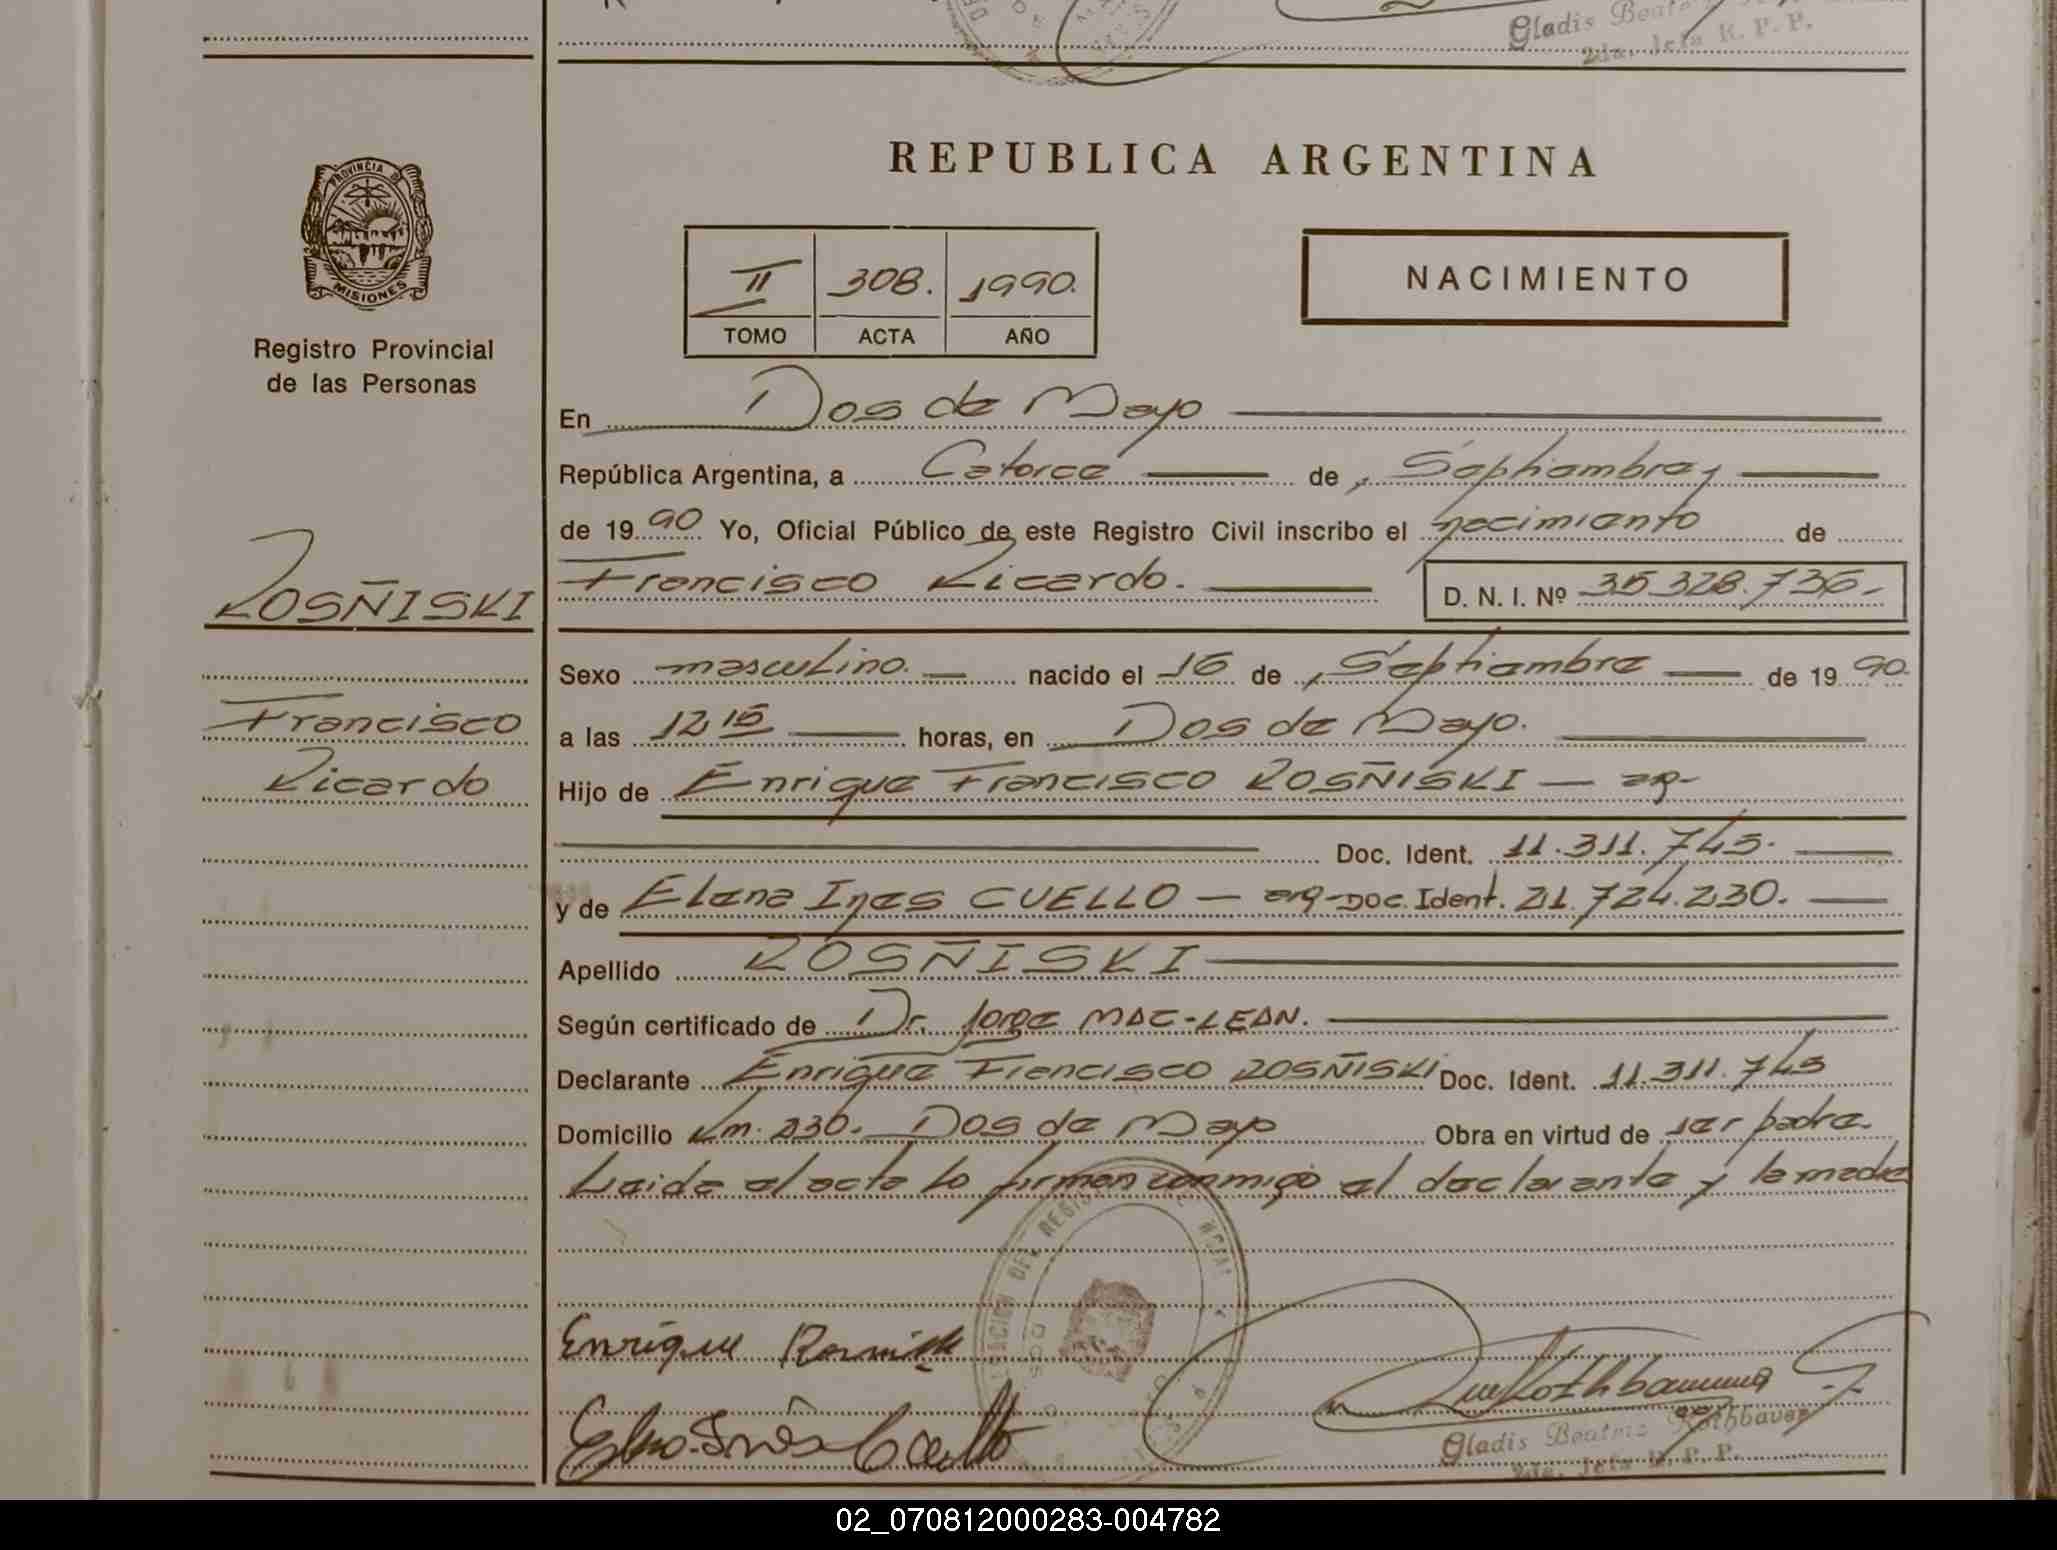 Gladis Beatriz
2da. Jefa R. P. P.
REPUBLICA ARGENTINA
PROVINCIA D
MISIONES
Registro Provincial
de las Personas
II 308. 1990.
TOMO ACTA AÑO
NACIMIENTO
En Dos de Mayo
República Argentina, a Catorce de Septiembre,
de 1990 Yo, Oficial Público de este Registro Civil inscribo el nacimiento de
ROSÑISKI
Francisco Ricardo. D. N. I. Nº 35328.736.-
Sexo masculino. nacido el 16 de Septiembre de 1990.
Francisco
a las 12 15 horas, en Dos de Mayo.
Ricardo
Hijo de Enrique Francisco ROSÑISKI — arg-
Doc. Ident. 11.311.745.
y de Elena Ines CUELLO — arg-Doc. Ident. 21.724.230.
Apellido ROSÑISKI
Según certificado de Dr. Jorge MAC-LEAN.
Declarante Enrique Francisco ROSÑISKI Doc. Ident. 11.311.745
Domicilio Km. 230. Dos de Mayo Obra en virtud de ser padre.
Leida el acta lo firman conmigo el declarante y la madre
Enrique
Gladis Beatriz Rothbauer
2da. Jefa R. P. P.
02_070812000283-004782